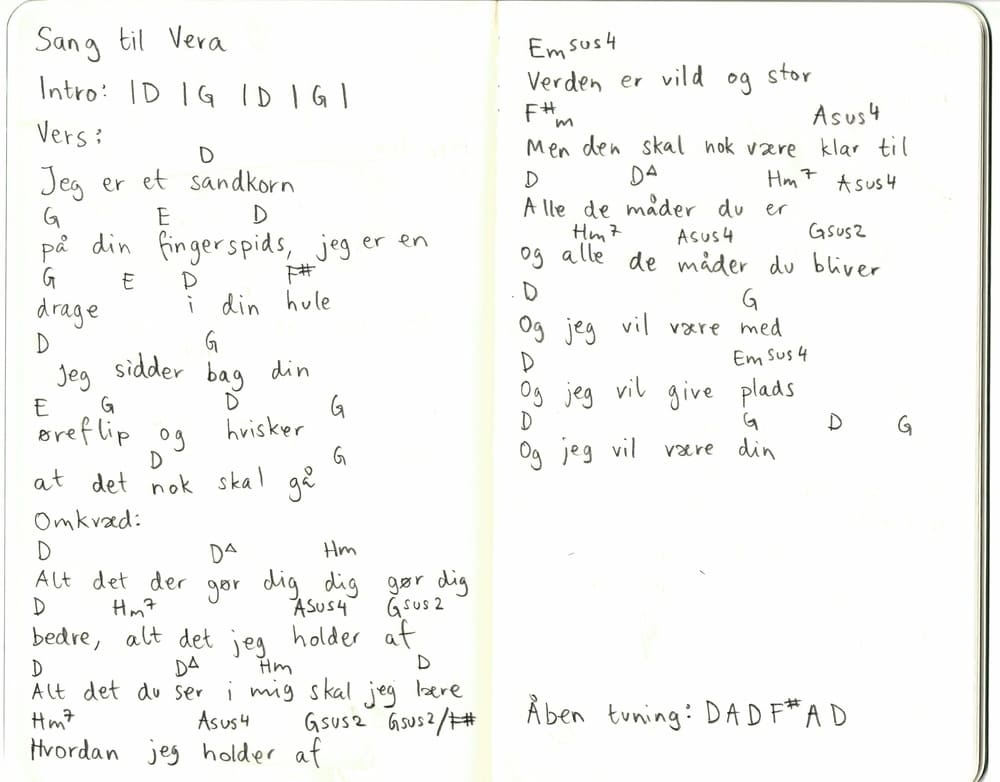 Sang til Vera
Intro: | D | G | D | G |
Vers:
D
Jeg er et sandkorn
G E D
på din fingerspids, jeg er en
G E D F#
drage i din hule
D G
Jeg sidder bag din
E G D G
øreflip og hvisker
D G
at det nok skal gå
Omkvæd:
D D△ Hm
Alt det der gør dig dig gør dig
D Hm7 Asus4 Gsus2
bedre, alt det jeg holder af
D D△ Hm D
Alt det du ser i mig skal jeg lære
Hm7 Asus4 Gsus2 Gsus2/F#
Hvordan jeg holder af
Emsus4
Verden er vild og stor
F#m Asus4
Men den skal nok være klar til
D D△ Hm7 Asus4
Alle de måder du er
Hm7 Asus4 Gsus2
og alle de måder du bliver
D G
Og jeg vil være med
D Emsus4
Og jeg vil give plads
D G D G
Og jeg vil være din
Åben tuning: D A D F# A D